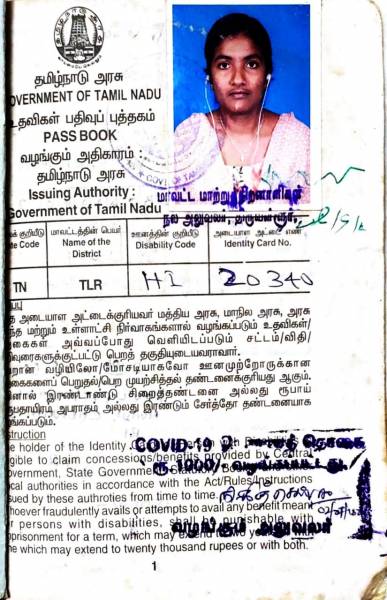 தமிழ்நாடு அரசு
GOVERNMENT OF TAMIL NADU
உதவிகள் பதிவுப் புத்தகம்
PASS BOOK
வழங்கும் அதிகாரம் :
தமிழ்நாடு அரசு
Issuing Authority :
Government of Tamil Nadu
மாவட்ட மாற்றுத்திறனாளிகள்
நல அலுவலர், திருவள்ளூர்.
குறியீடு மாவட்டத்தின் பெயர் ஊனத்தின் குறியீடு அடையாள அட்டை எண்
Code Name of the District Disability Code Identity Card No.
TN TLR HI 20340
அடையாள அட்டைக்குரியவர் மத்திய அரசு, மாநில அரசு, அரசு
மற்றும் உள்ளாட்சி நிர்வாகங்களால் வழங்கப்படும் உதவிகள்/
அவ்வப்போது வெளியிடப்படும் சட்டம்/விதி/
பெறத் தகுதியுடையவராவார்.
வழியிலோ/மோசடியாகவோ ஊனமுற்றோருக்கான
பெறுதல்/பெற முயற்சித்தல் தண்டனைக்குரியது ஆகும்.
இரண்டாண்டு சிறைத்தண்டனை அல்லது ரூபாய்
அபராதம் அல்லது இரண்டும் சேர்த்தோ தண்டனையாக
holder of the Identity
to claim concessions/benefits provided by Central
State Government
authorities in accordance with the Act/Rules/Instructions
by these authroties from time to time.
fraudulently avails or attempts to avail any benefit meant
persons with disabilities, shall be punishable with
for a term, which may extend
which may extend to twenty thousand rupees or with both.
COVID-19
ரூ 1000/-
வழங்கும் அலுவலர்
1